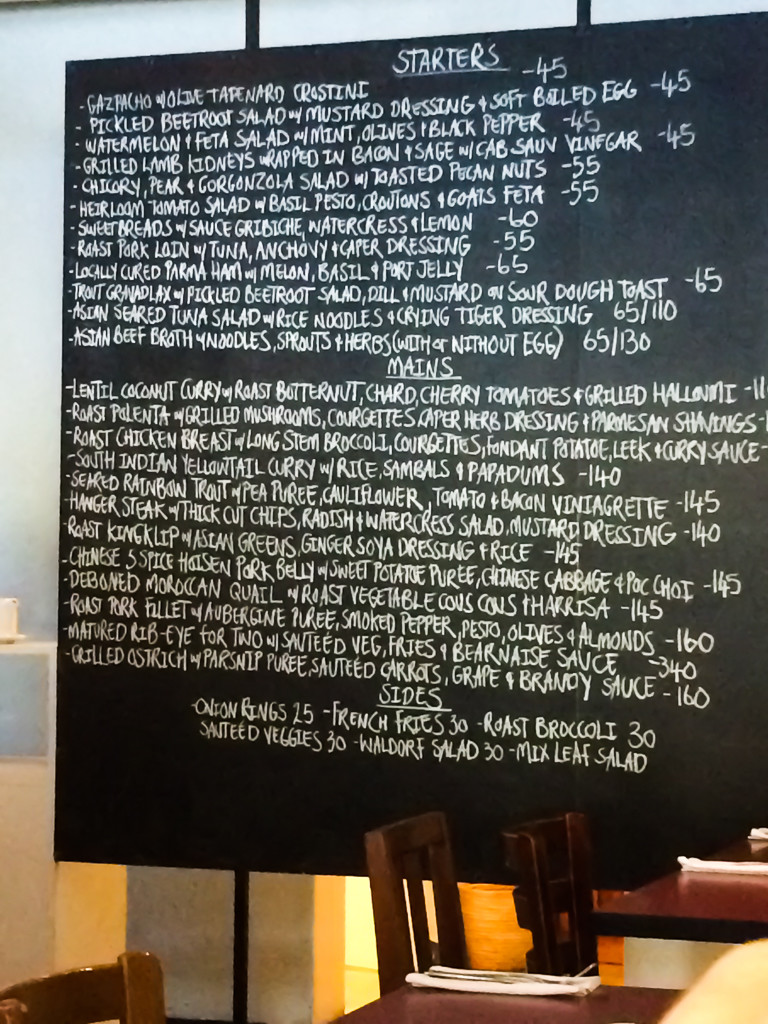 STARTERS
- GAZPACHO w/ OLIVE TAPENARD CROSTINI -45
- PICKLED BEETROOT SALAD w/ MUSTARD DRESSING & SOFT BOILED EGG -45
- WATERMELON & FETA SALAD w/ MINT, OLIVES & BLACK PEPPER -45
- GRILLED LAMB KIDNEYS WRAPPED IN BACON & SAGE w/ CAB SAUV VINEGAR -45
- CHICORY, PEAR & GORGONZOLA SALAD w/ TOASTED PECAN NUTS -55
- HEIRLOOM TOMATO SALAD w/ BASIL PESTO, CROUTONS & GOATS FETA -55
- SWEETBREADS w/ SAUCE GRIBICHE, WATERCRESS & LEMON -60
- ROAST PORK LOIN w/ TUNA, ANCHOVY & CAPER DRESSING -55
- LOCALLY CURED PARMA HAM w/ MELON, BASIL & PORT JELLY -65
- TROUT GRAVADLAX w/ PICKLED BEETROOT SALAD, DILL & MUSTARD ON SOUR DOUGH TOAST -65
- ASIAN SEARED TUNA SALAD w/ RICE NOODLES & CRYING TIGER DRESSING 65/110
- ASIAN BEEF BROTH w/ NOODLES, SPROUTS & HERBS (WITH or WITHOUT EGG) 65/130
MAINS
- LENTIL COCONUT CURRY w/ ROAST BUTTERNUT, CHARD, CHERRY TOMATOES & GRILLED HALLOUMI
- ROAST POLENTA w/ GRILLED MUSHROOMS, COURGETTES, CAPER HERB DRESSING & PARMESAN SHAVINGS
- ROAST CHICKEN BREAST w/ LONG STEM BROCCOLI, COURGETTES, FONDANT POTATOE, LEEK & CURRY SAUCE -
- SOUTH INDIAN YELLOWTAIL CURRY w/ RICE, SAMBALS & PAPADUMS -140
- SEARED RAINBOW TROUT w/ PEA PUREE, CAULIFLOWER, TOMATO & BACON VINIAGRETTE -145
- HANGER STEAK w/ THICK CUT CHIPS, RADISH & WATERCRESS SALAD, MUSTARD DRESSING -140
- ROAST KINGKLIP w/ ASIAN GREENS, GINGER SOYA DRESSING & RICE -145
- CHINESE 5 SPICE HOISEN PORK BELLY w/ SWEET POTATOE PUREE, CHINESE CABBAGE & POC CHOI -145
- DEBONED MOROCCAN QUAIL w/ ROAST VEGETABLE COUS COUS & HARRISA -145
- ROAST PORK FILLET w/ AUBERGINE PUREE, SMOKED PEPPER, PESTO, OLIVES & ALMONDS -160
- MATURED RIB-EYE FOR TWO w/ SAUTEÉD VEG, FRIES & BEARNAISE SAUCE -340
- GRILLED OSTRICH w/ PARSNIP PUREE, SAUTEÉD CARROTS, GRAPE & BRANDY SAUCE -160
SIDES
- ONION RINGS 25 - FRENCH FRIES 30 - ROAST BROCCOLI 30
SAUTEÉD VEGGIES 30 - WALDORF SALAD 30 - MIX LEAF SALAD